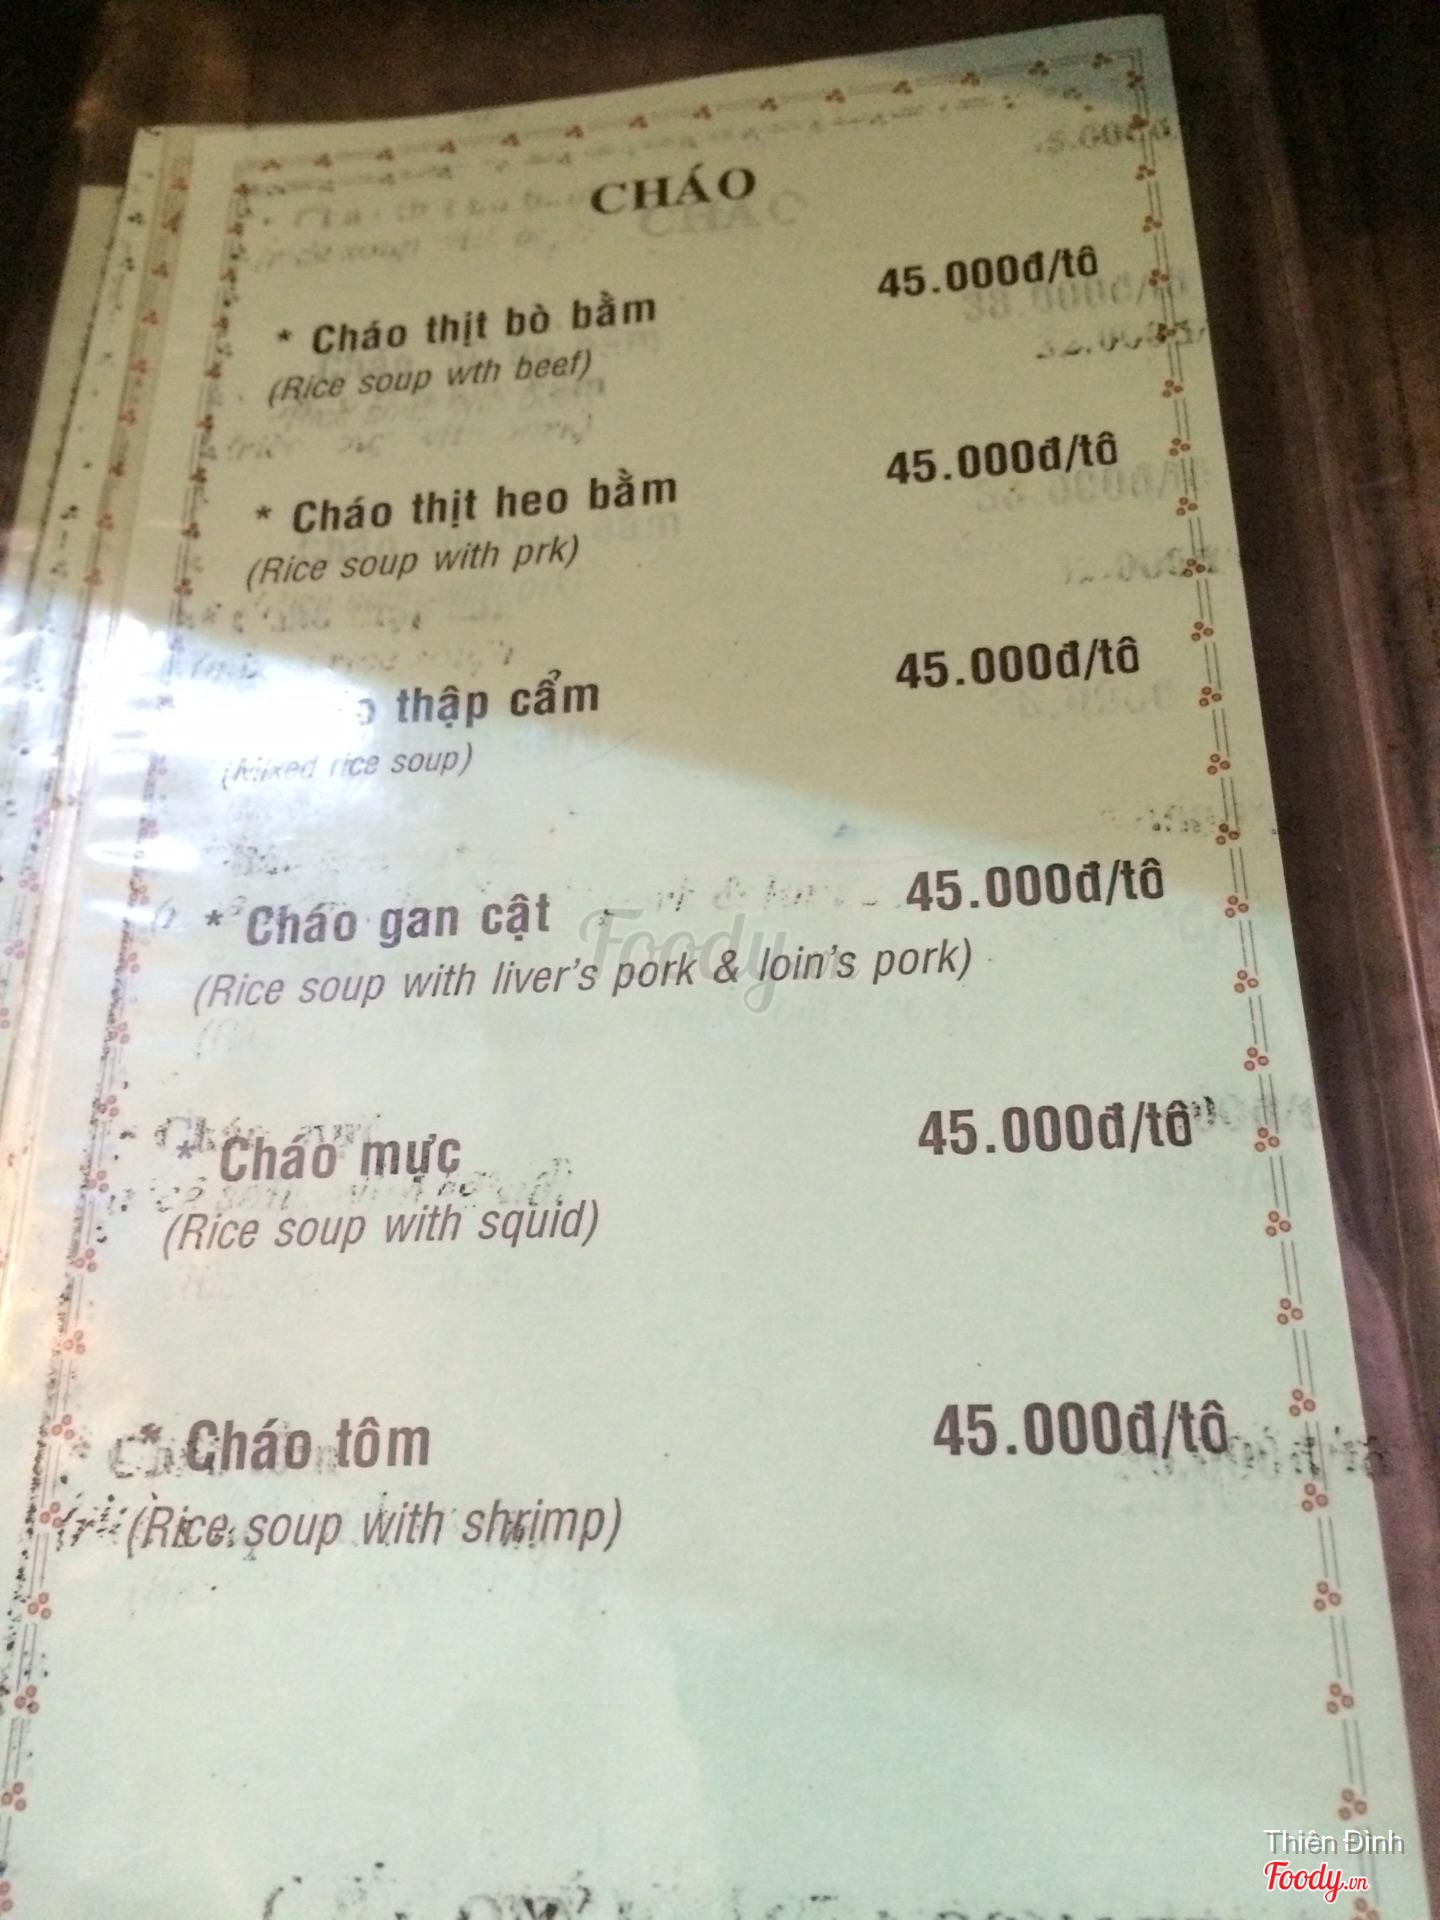 CHÁO
* Cháo thịt bò bằm 45.000đ/tô
(Rice soup wth beef)
* Cháo thịt heo bằm 45.000đ/tô
(Rice soup with prk)
thập cẩm 45.000đ/tô
(Mixed rice soup)
* Cháo gan cật 45.000đ/tô
(Rice soup with liver's pork & loin's pork)
* Cháo mực 45.000đ/tô
(Rice soup with squid)
* Cháo tôm 45.000đ/tô
(Rice soup with shrimp)
Foody
Thiên Đình
Foody.vn